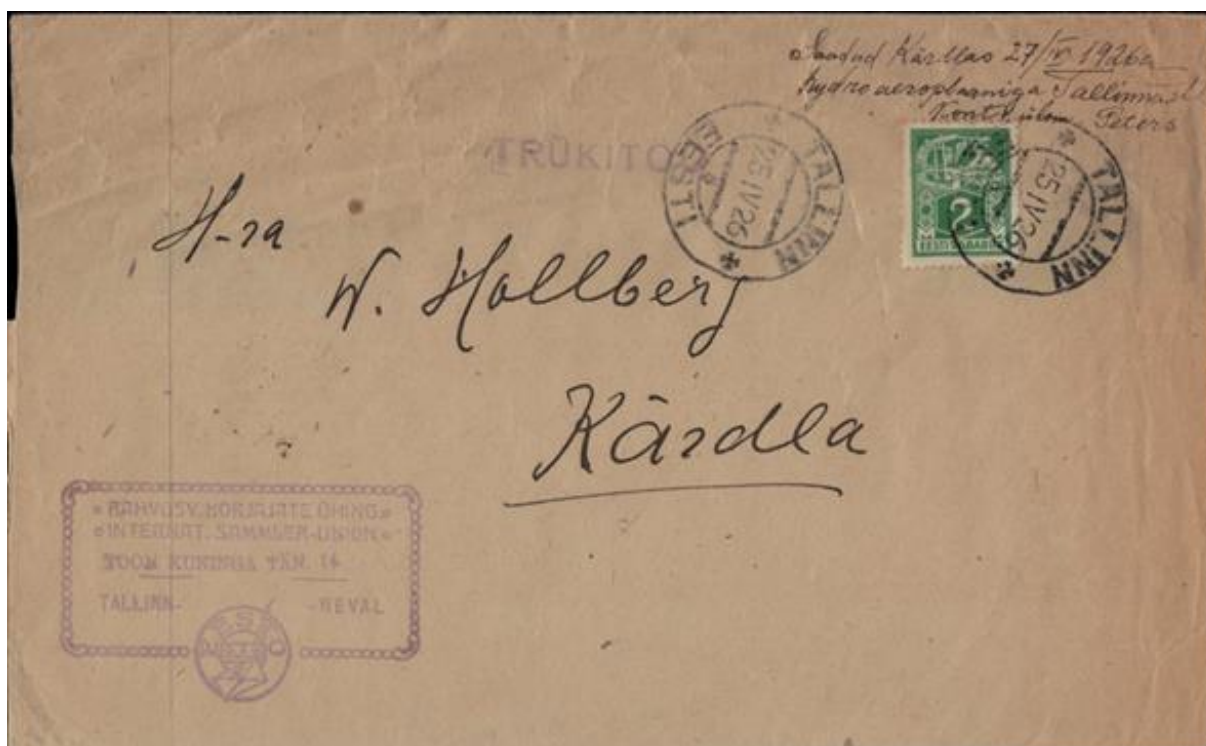 Saadud Kärdlas 27/IV 1926a
hydroaeroplaaniga Tallinnast
Peters
TRÜKITO
TALLINN
EESTI
25 IV 26
TALLINN
25 IV 26
2
EESTI
H-ra
W. Hollberg
Kärdla
RAHVUSV. KORJAJATE ÜHING
INTERNAT. SAMMLER-UNION
TOOM KUNINGA TÄN. 14
TALLINN- -REVAL